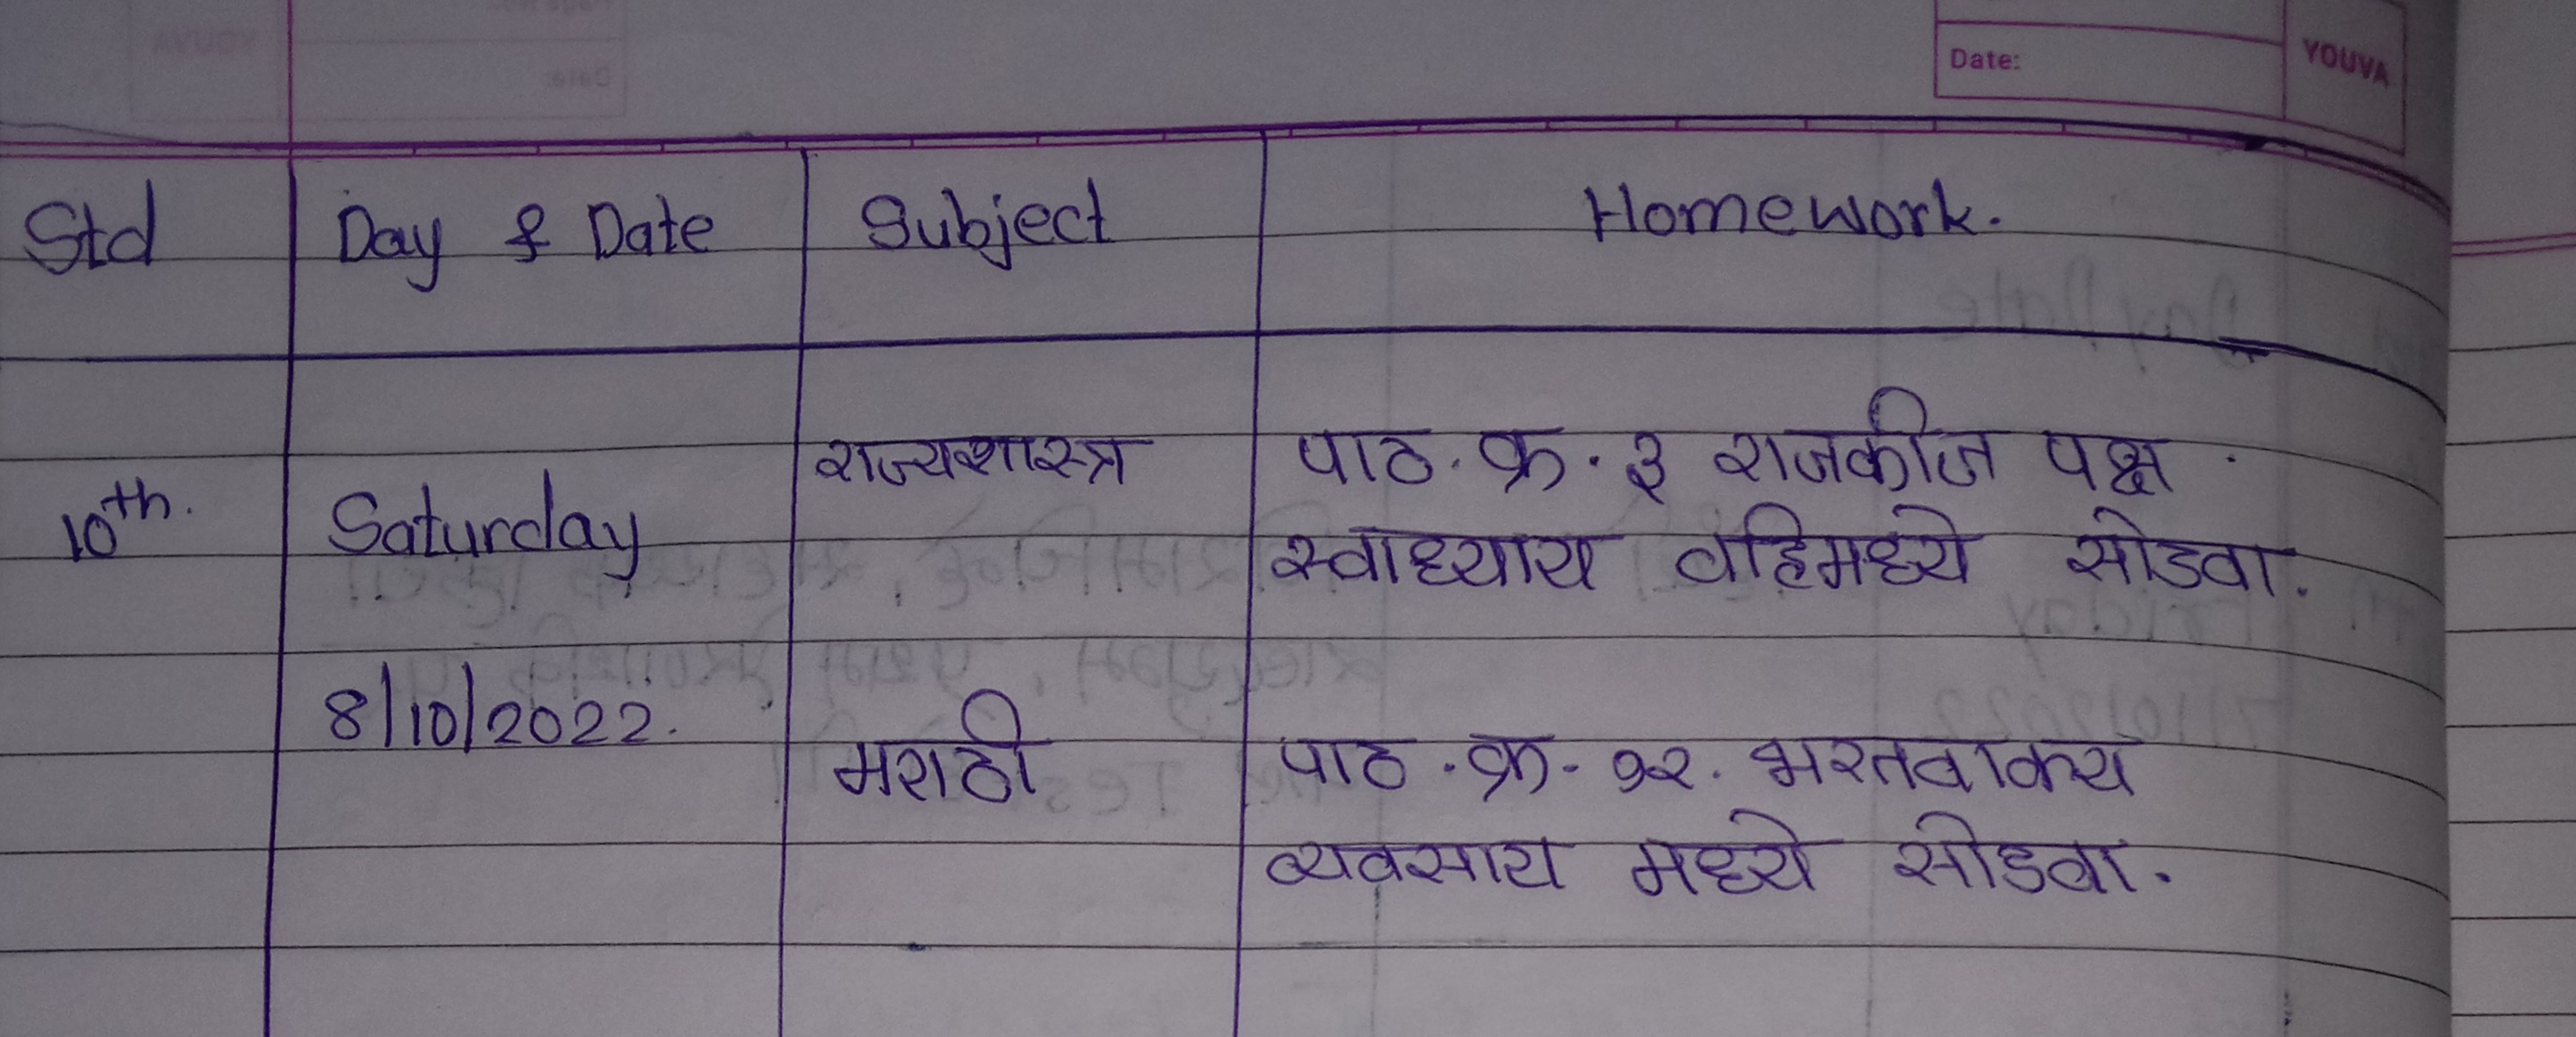 Date:
YOUVA
Std Day & Date Subject Homework.
राज्यशास्त्र पाठ. क्र. ३ राजकीज पक्ष
10th. Saturday स्वाध्याय वहिमध्ये सोडवा.
8/10/2022.
मराठी पाठ. क्र. १२. भरतवाक्य
व्यवसाय मध्ये सोडवा.